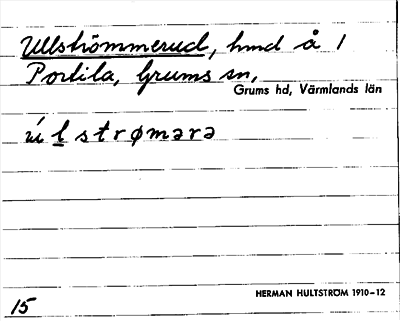 Ullströmmerud, hmd å 1
Portila, Grums sn,
Grums hd, Värmlands län
ú l̲ s t r ø m ə r ə
HERMAN HULTSTRÖM 1910-12
15